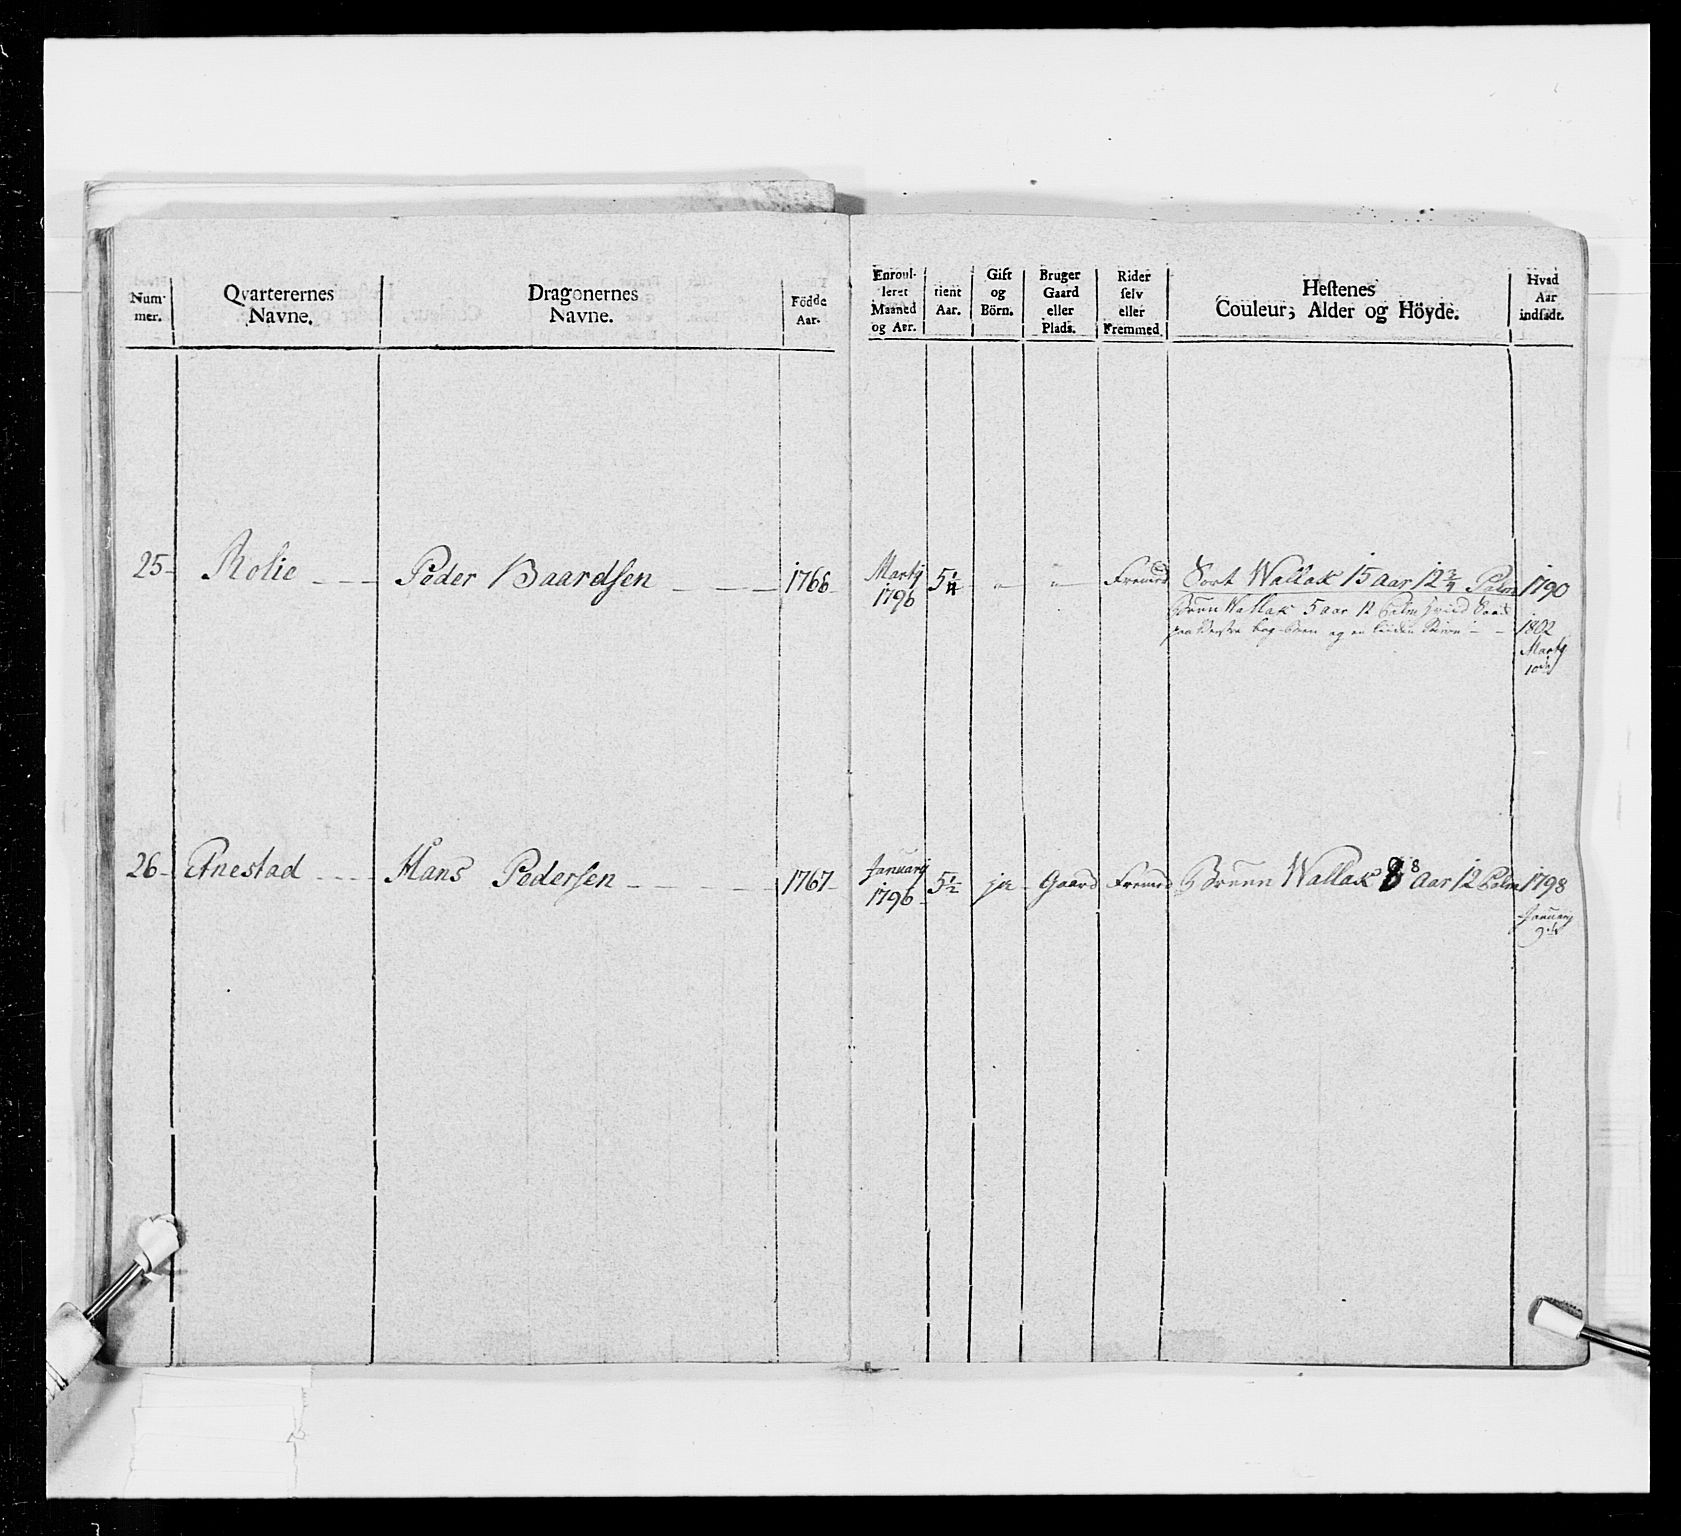 Num-
mer.
Qvarterernes
Navne.
Dragonernes
Navne.
Födde
Aar.
Enroul-
leret
Maaned
og Aar.
tient
Aar.
Gift
og
Börn.
Bruger
Gaard
eller
Plads.
Rider
selv
eller
Fremmed.
Hestenes
Couleur, Alder og Höyde.
Hvad
Aar
indsadt.
25 - Rolie - - - Peder Baardsen - - - - 1766 Martij 5 1/4 - - Fremd Sort Wallak 15 aar 12 3/4 Palm 1790
1796
Brun Wallak 5 aar 12 Palm hvid
paa venstre bag og en liden - - 1802
Martij
10de
26 - Enestad - - - Hans Pedersen - - - - 1767 - Januarij 5 1/2 ja - Gaard Fremd Bruun Wallak 8 8 aar 12 Palm 1798
1796 -
Januarij
9de